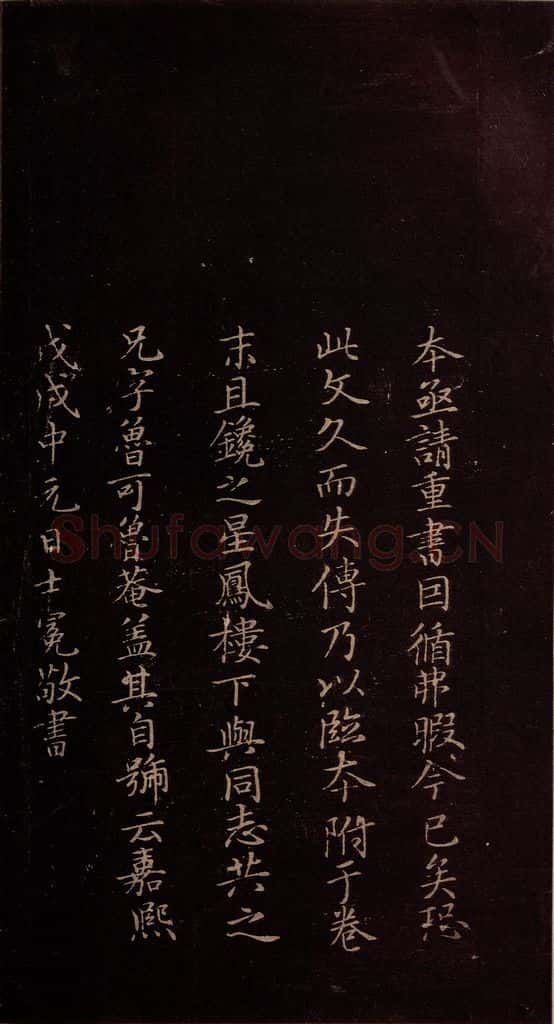 本亟請重書因循弗暇今已矣恐
此文久而失傳乃以臨本附于卷
末且鑱之星鳳樓下與同志共之
兄字魯可魯菴盖其自號云嘉熙
戊戌中元日士冕敬書
Shufawang.CN